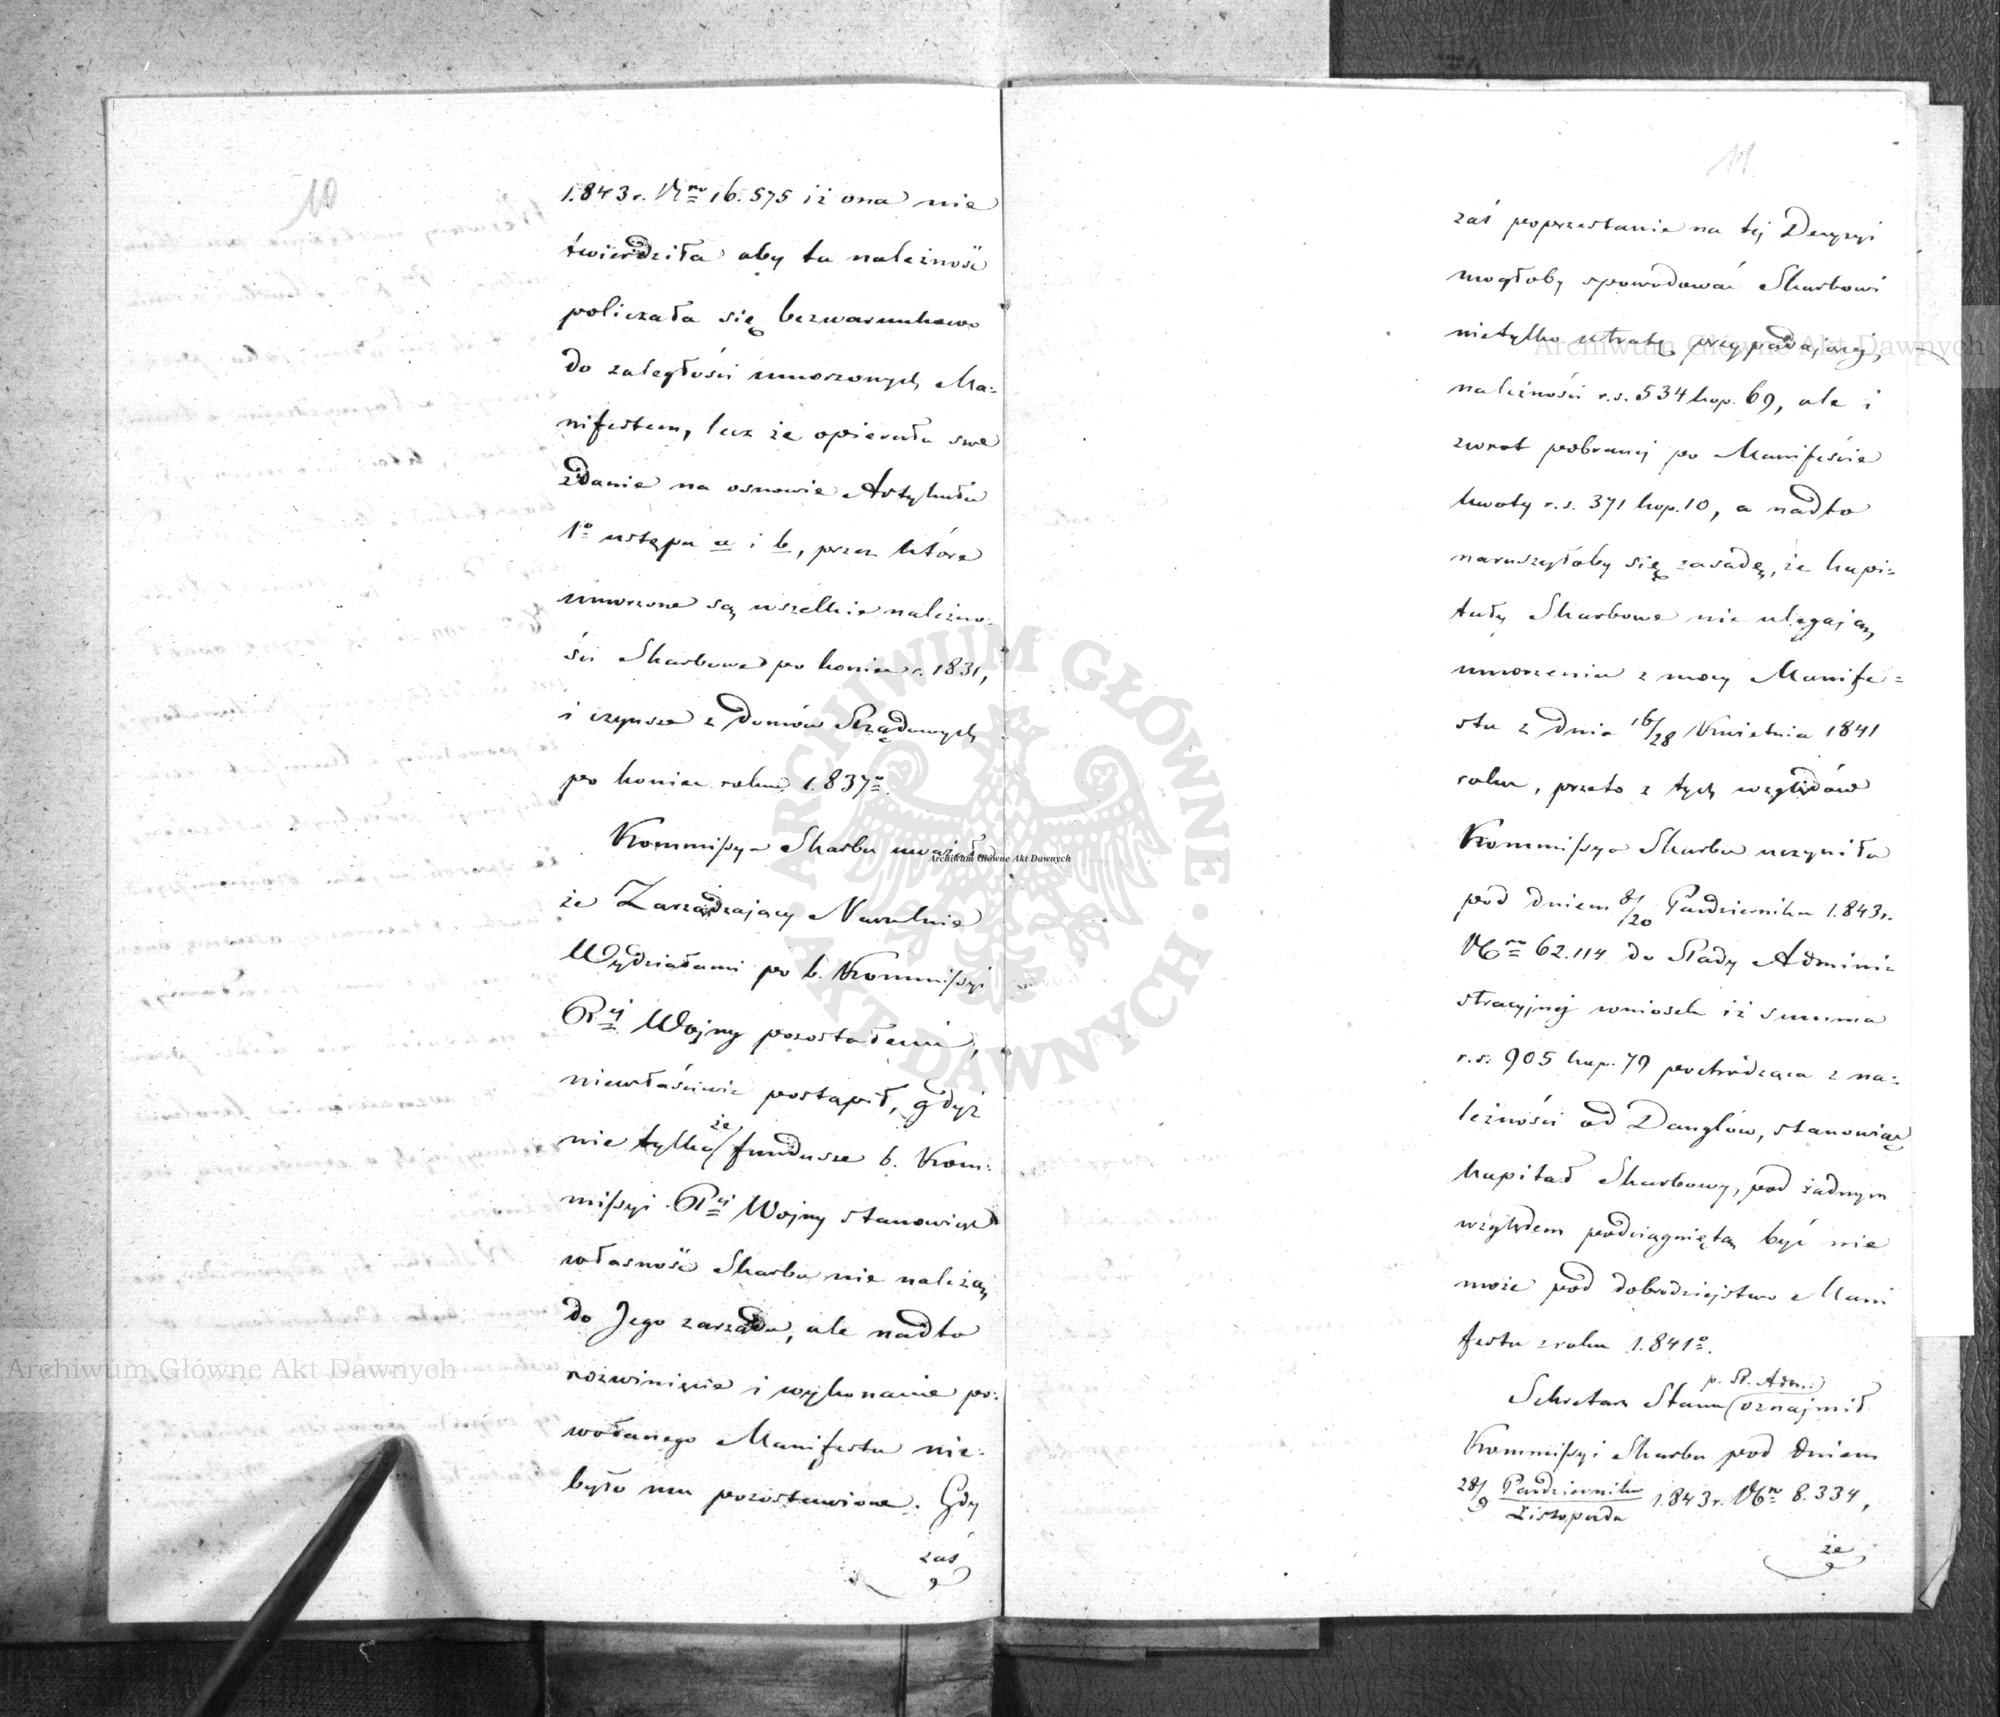 10
1.843 r. Nro 16.575 iż ona nie
twierdziła aby ta należność
policzała się bezwarunkowo
do zaległości umorzonych Ma=
nifestem, lecz że opierała swe
zdanie na osnowie Artykułu
1o ustępu a i b, przez które
umorzone są wszelkie należno=
ści Skarbowe po koniec r. 1831,
i czynsze z domów Rządowych
po koniec roku 1.837o.
Kommissya Skarbu uważała
że Zarządzający Naczelnie
Wydziałami po b. Kommissyi
Rej Wojny pozostałemi,
niewłaściwie postąpił, gdyż
nie tylko że fundusze b. Kom=
missyi Rej Wojny stanowiąc
własność Skarbu nie należą
do Jego zarządu, ale nadto
rozwinięcie i wykonanie po=
wołanego Manifestu nie=
było mu pozostawione. Gdy
zaś
11
zaś poprzestanie na tej Decyzyi
mogłoby spowodować Skarbowi
nietylko utratę przypadającej
należności r.s. 534 kop. 69, ale i
zwrot pobranej po Manifeście
kwoty r.s. 371 kop. 10, a nadto
naruszyłoby się zasadę, że kapi=
tały Skarbowe nie ulegają
umorzeniu z mocy Manife=
stu z dnia 16/28 Kwietnia 1841
roku, przeto z tych względów
Kommissya Skarbu uczyniła
pod dniem 8/20 Października 1.843 r.
Nro 62.114 do Rady Admini=
stracyjnej wniosek iż summa
r.s. 905 kop. 79 pochodząca z na=
leżności od Danglów, stanowiąc
kapitał Skarbowy, pod żadnym
względem podciągniętą być nie
może pod dobrodziejstwo Mani
festu z roku 1.841o.
Sekretarz Stanu p. R. Adm. oznajmił
Kommissyi Skarbu pod dniem
28/9 Października/Listopada 1.843 r. Nro 8.334,
że
Archiwum Główne Akt Dawnych
Archiwum Główne Akt Dawnych
Archiwum Główne Akt Dawnych
ARCHIWUM GŁÓWNE AKT DAWNYCH